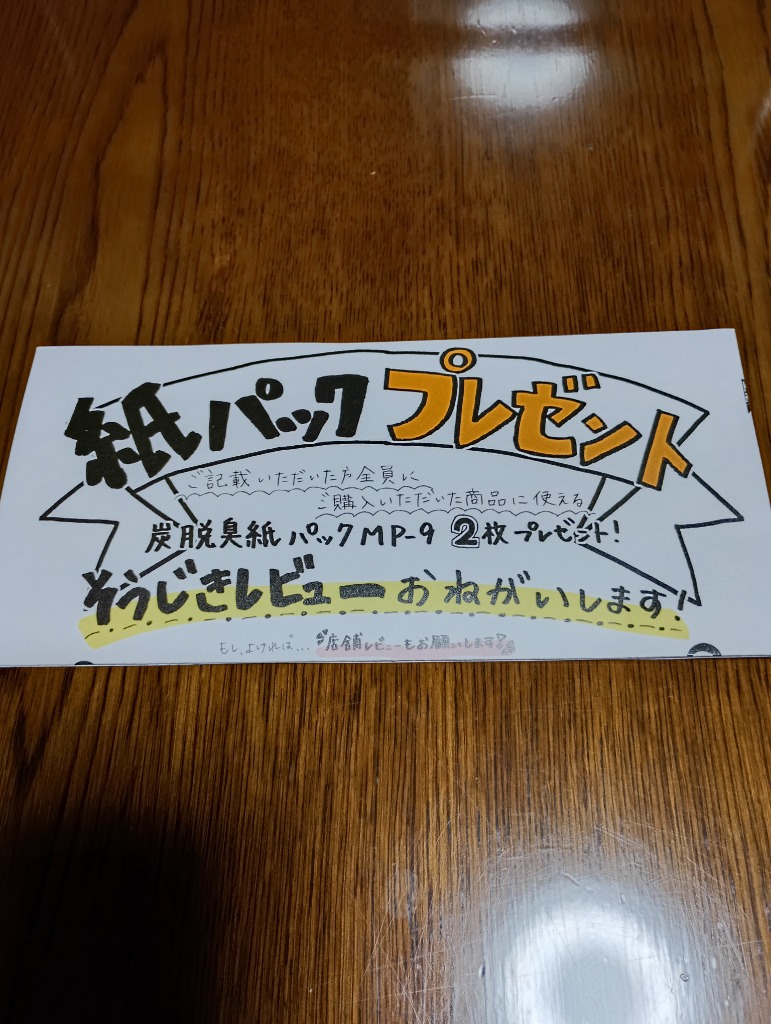 紙パックプレゼント
ご記載いただいた方全員に
ご購入いただいた商品に使える
炭脱臭紙パックMP-9 2枚プレゼント!
そうじきレビューおねがいします!
もし、よければ...店舗レビューもお願いします!